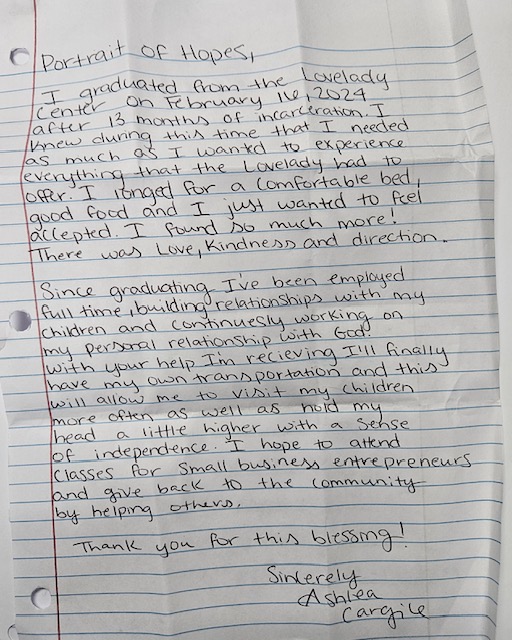 Portrait of Hopes,
I graduated from the Lovelady
Center on February 16, 2024
after 13 months of incarceration. I
knew during this time that I needed
as much as I wanted to experience
everything that the Lovelady had to
offer. I longed for a comfortable bed,
good food and I just wanted to feel
accepted. I found so much more!
There was Love, Kindness and direction.
Since graduating I've been employed
full time, building relationships with my
children and continuesly working on
my personal relationship with God.
With your help I'm recieving I'll finally
have my own transportation and this
will allow me to visit my children
more often as well as hold my
head a little higher with a sense
of independence. I hope to attend
classes for small business entrepreneurs
and give back to the community
by helping others.
Thank you for this blessing!
Sincerely
Ashlea
Cargile